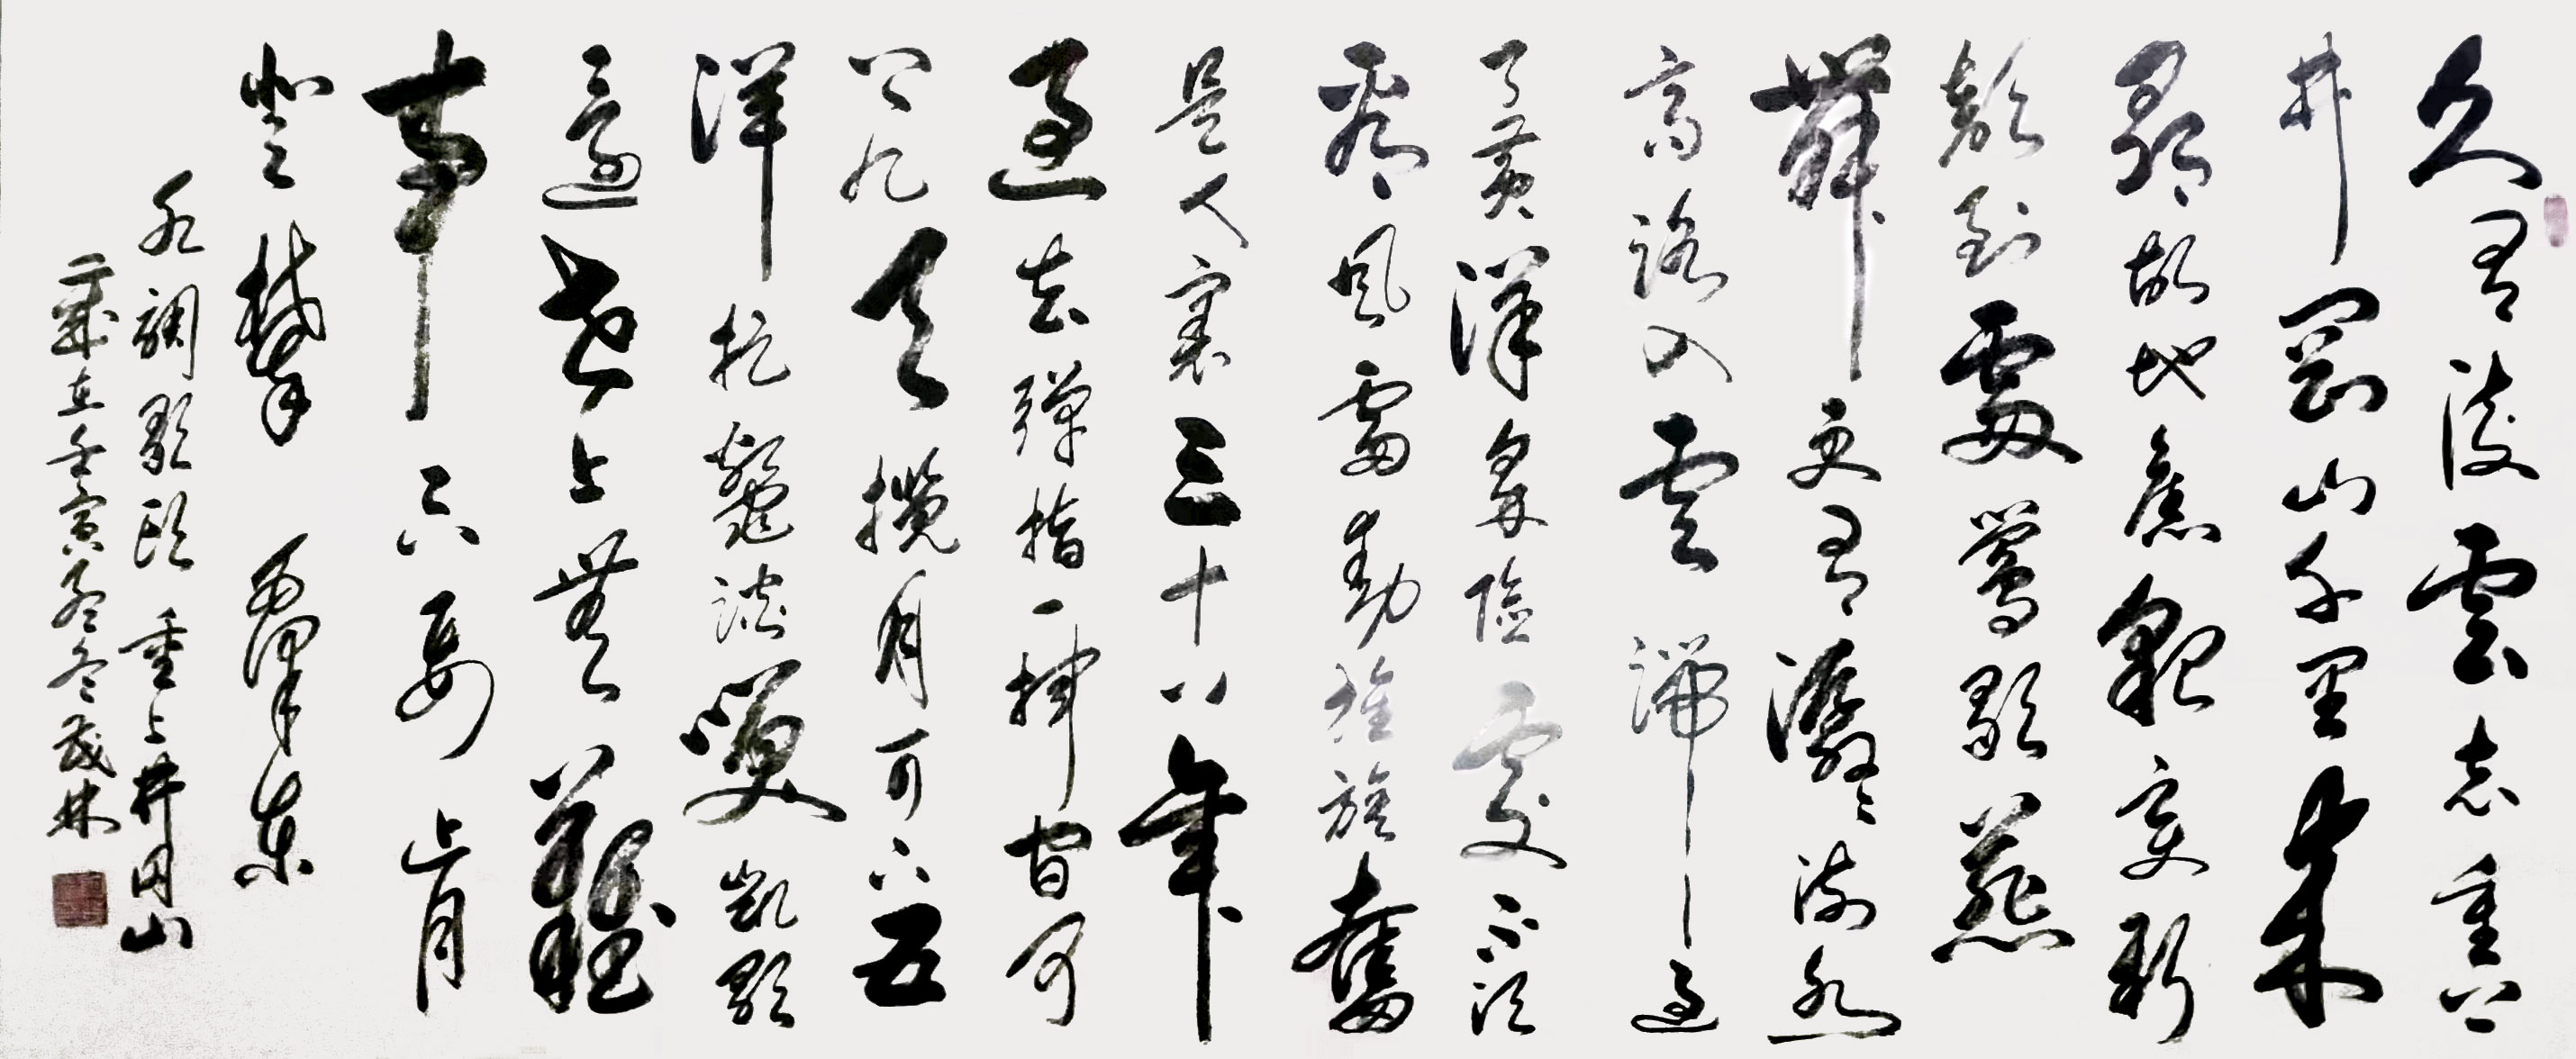 久有凌雲志重上
井岡山千里来
尋故地舊貌变新
颜到處莺歌燕
舞更有潺潺流水
高路入雲端过
了黄洋界險處不须
看风雷動旌旗奮
是人寰三十八年
过去弹指一挥间可
上九天揽月可下五
洋捉鳖谈笑凯歌
還世上無難
事只要肯
登攀 毛泽东
水调歌头 重上井冈山
歲在壬寅孟冬茂林